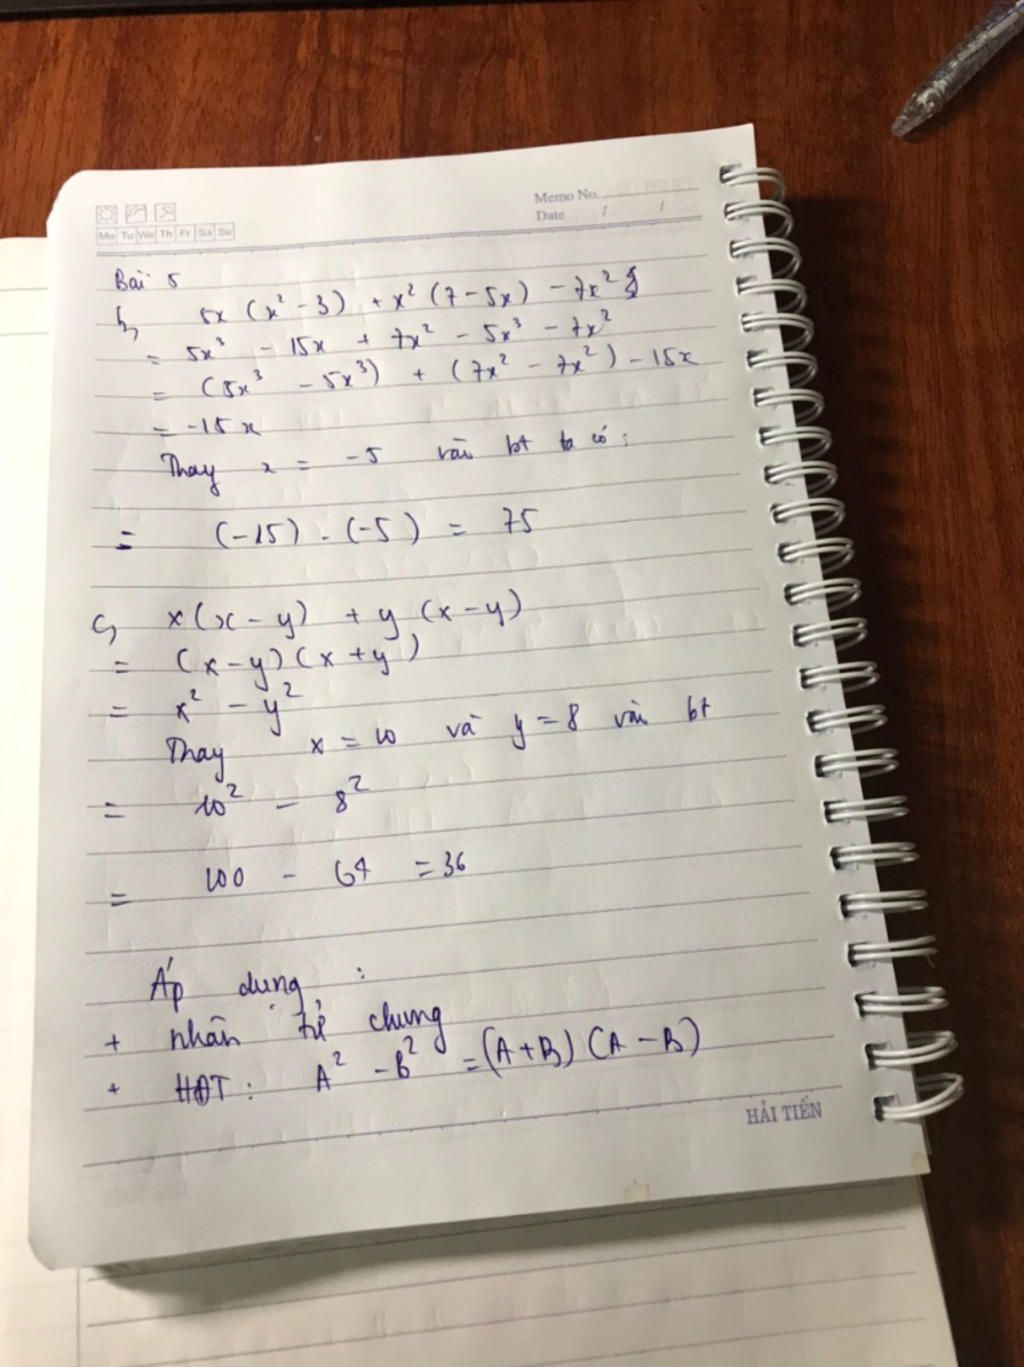 Memo No.
Date / /
Mo Tu We Th Fr Sa Su
Bài 5
b, 5x (x² - 3) + x² (7 - 5x) - 7x²
= 5x³ - 15x + 7x² - 5x³ - 7x²
= (5x³ - 5x³) + (7x² - 7x²) - 15x
= -15x
Thay x = -5 vào bt ta có :
= (-15) . (-5) = 75
c, x(x - y) + y (x - y)
= (x - y) (x + y)
= x² - y²
Thay x = 10 và y = 8 vào bt
= 10² - 8²
= 100 - 64 = 36
Áp dụng :
+ nhân tử chung
+ HĐT : A² - B² = (A + B) (A - B)
HẢI TIẾN